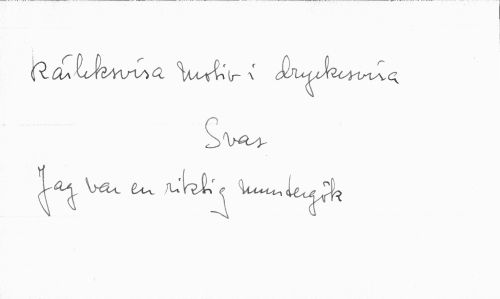 kärleksvisa motiv i dryckesvisa
Svar
Jag var en riktig muntergök